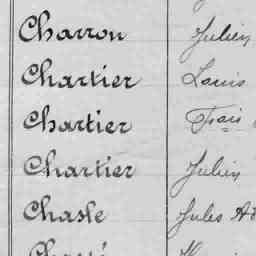 Charron Julien
Chartier Louis
Chartier Frois
Chartier Julien
Chasle Jules